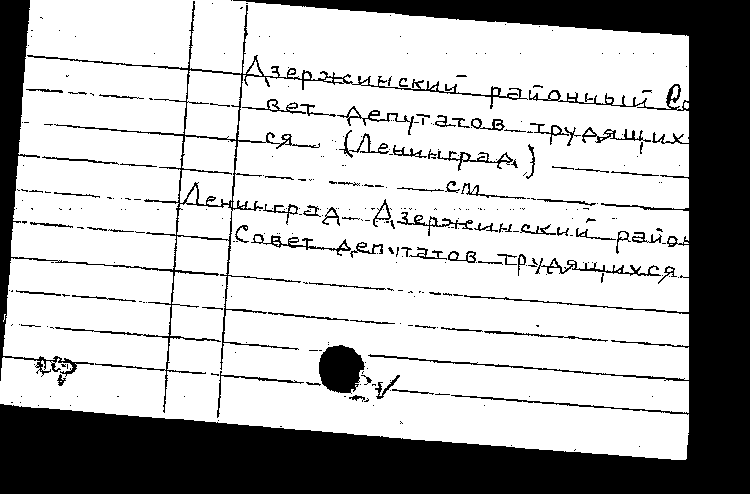 Дзержинский районный Со
вет депутатов трудящих
ся (Ленинград)
см.
Ленинград. Дзержинский район
Совет депутатов трудящихся.